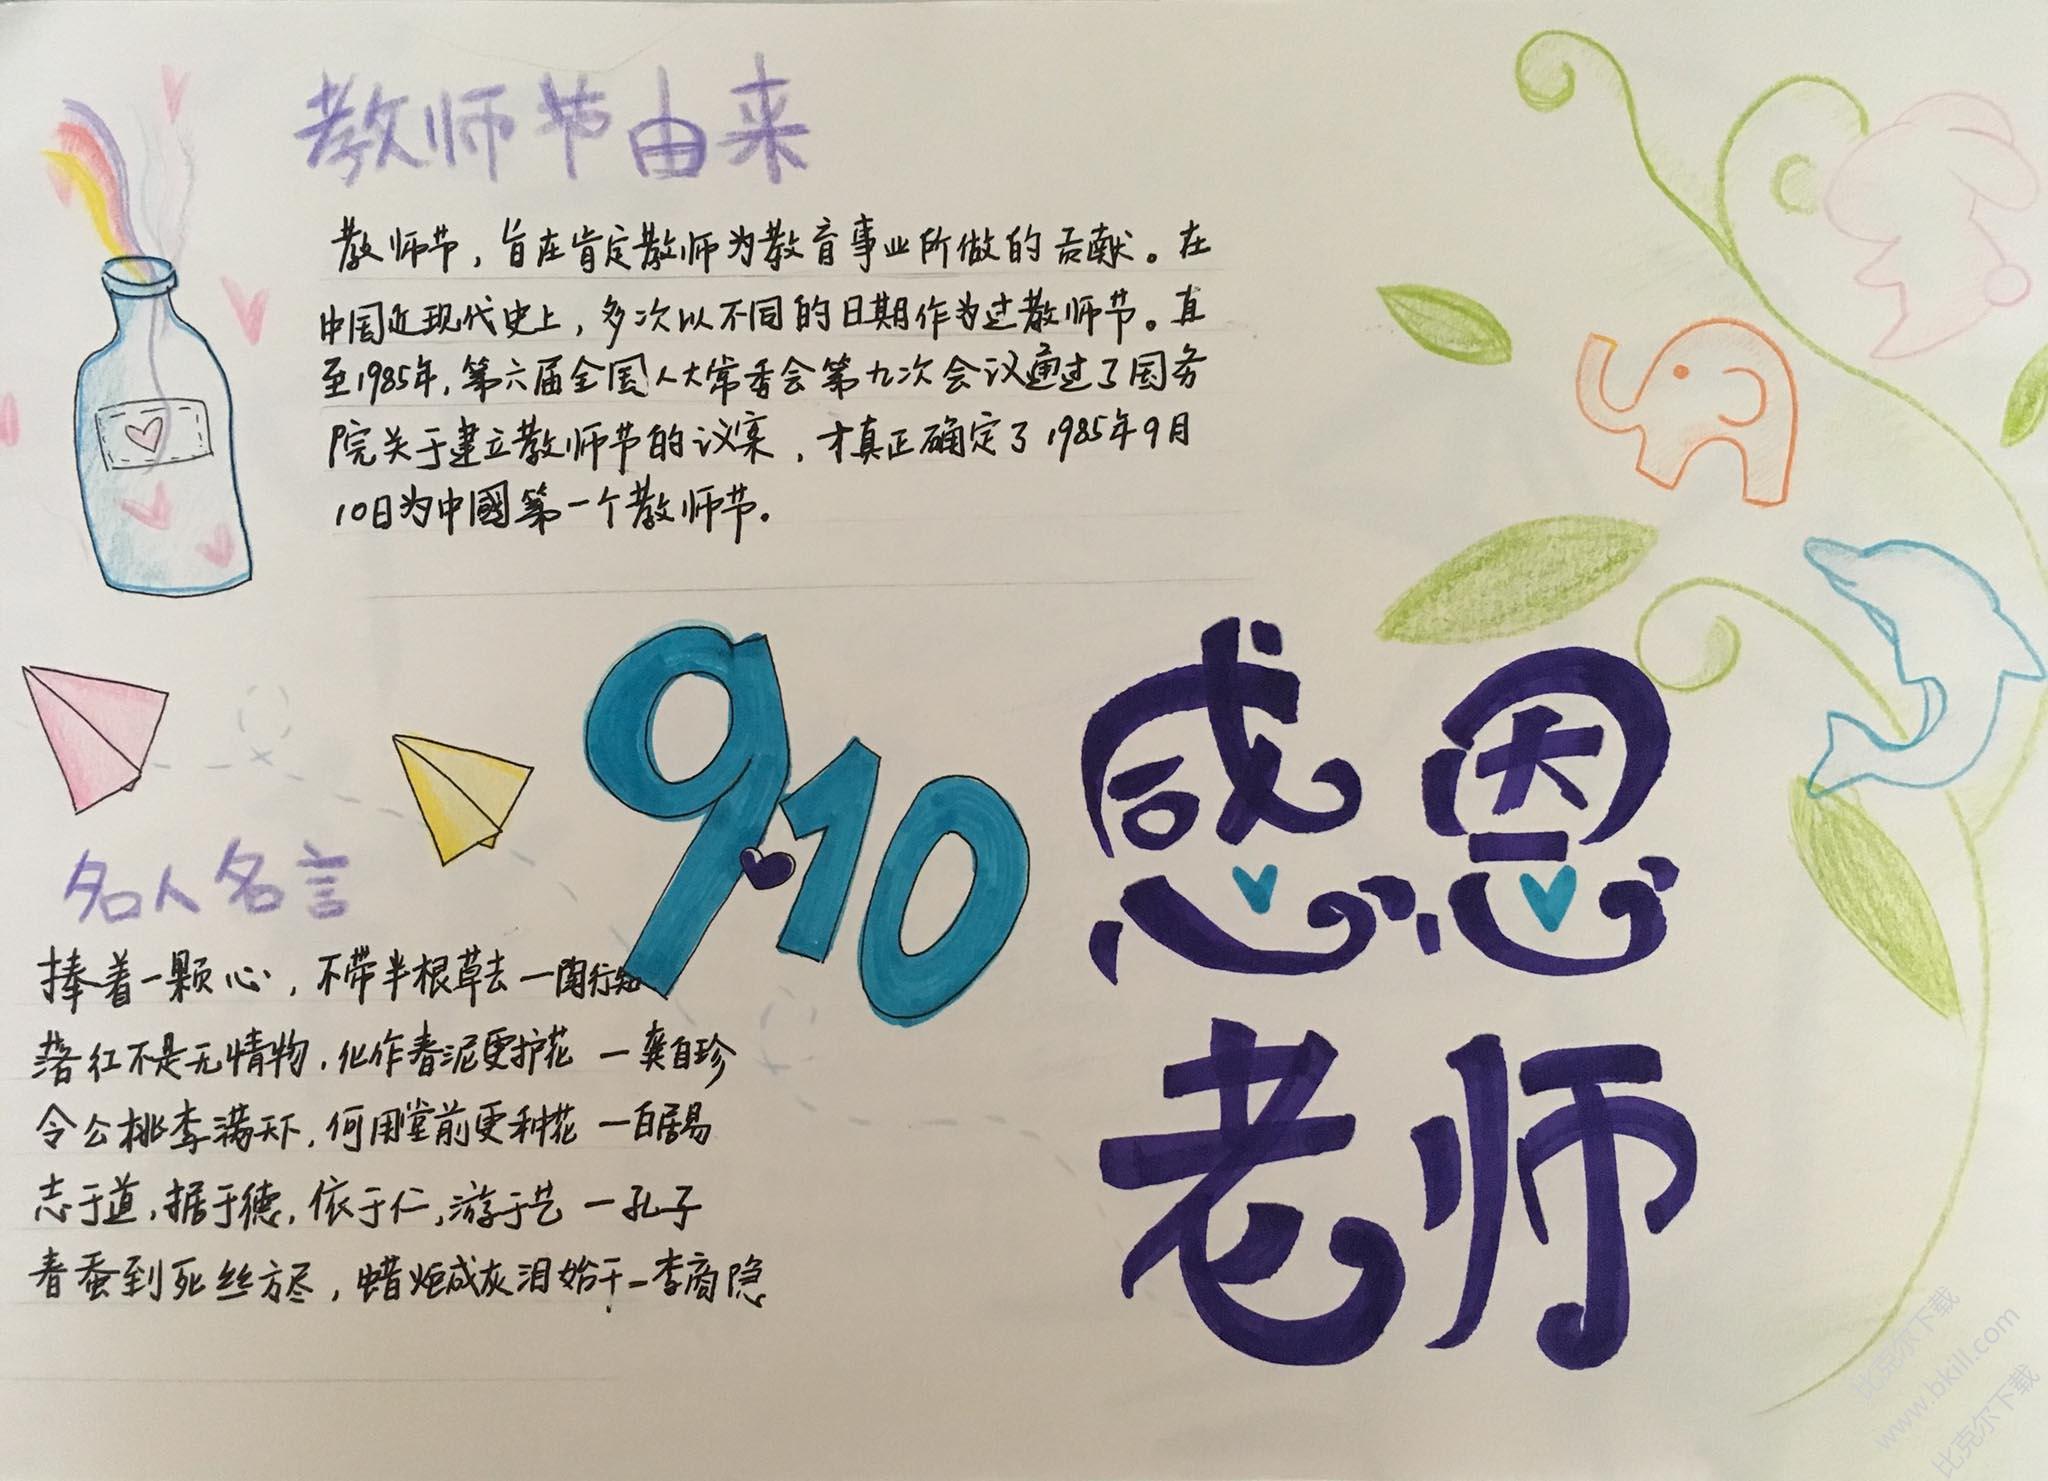 教师节由来
教师节，旨在肯定教师为教育事业所做的贡献。在
中国近现代史上，多次以不同的日期作为过教师节。直
至1985年，第六届全国人大常委会第九次会议通过了国务
院关于建立教师节的议案，才真正确定了1985年9月
10日为中國第一个教师节。
9.10
感恩
老师
名人名言
捧着一颗心，不带半根草去一陶行知
落红不是无情物，化作春泥更护花 一龚自珍
令公桃李满天下，何用堂前更种花 一白居易
志于道，据于德，依于仁，游于艺 一孔子
春蚕到死丝方尽，蜡炬成灰泪始干一李商隐
比克尔下载
www.bkill.com
比克尔下载